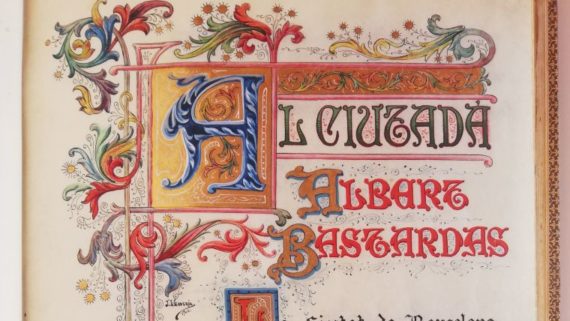 AL CIUTADÀ
ALBERT
BASTARDAS
La Ciutat de Barcelona